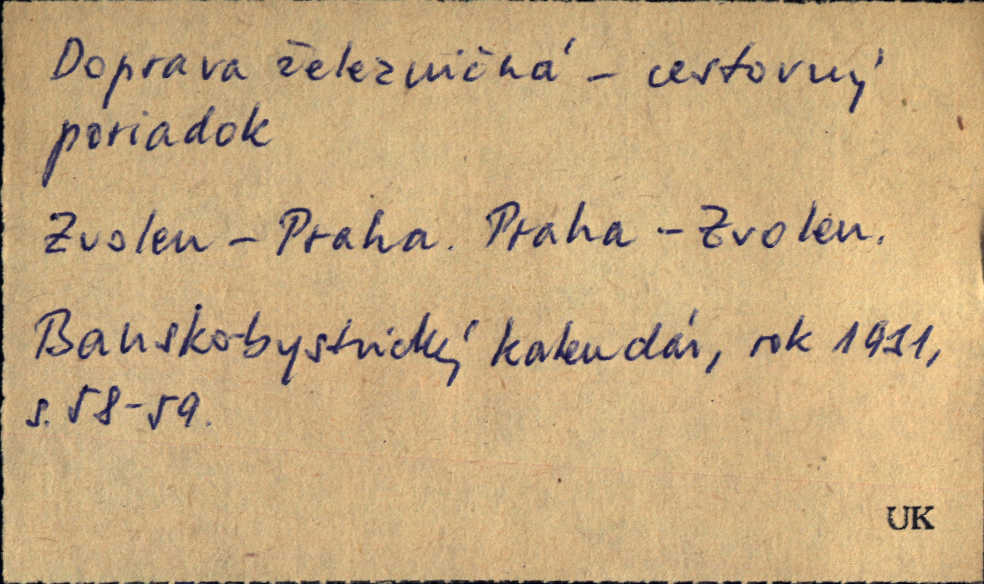 Doprava železničná – cestovný
poriadok
Zvolen – Praha. Praha – Zvolen.
Banskobystrický kalendár, rok 1921,
s. 58-59.
UK